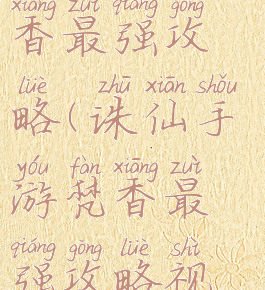 xiāng zuì qiáng gōng
香最强攻
lüè zhū xiān shǒu
略(诛仙手
yóu fàn xiāng zuì
游梵香最
qiáng gōng lüè shì
强攻略视